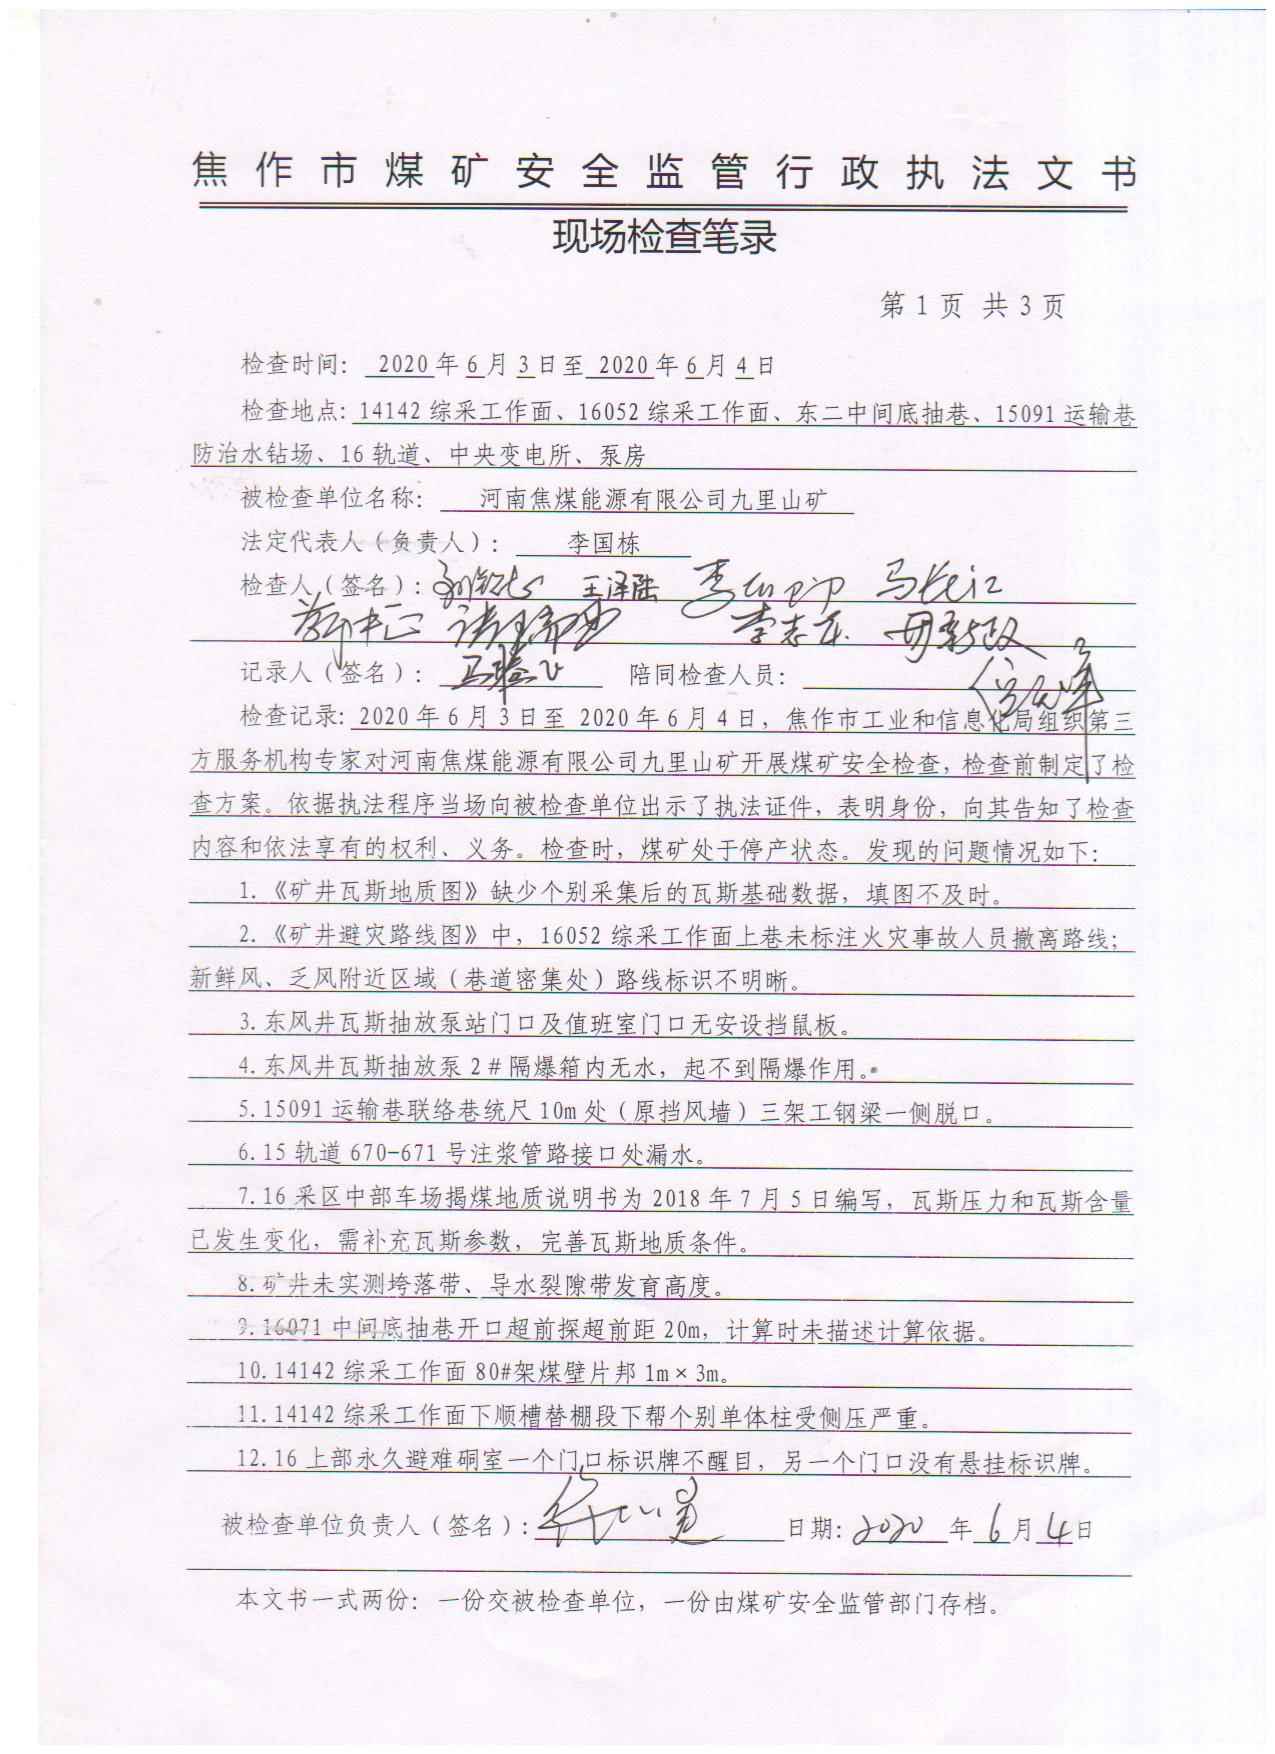 焦作市煤矿安全监管行政执法文书
现场检查笔录
第 1 页 共 3 页
检查时间: 2020 年 6 月 3 日至 2020 年 6 月 4 日
检查地点: 14142 综采工作面、16052 综采工作面、东二中间底抽巷、15091 运输巷
防治水钻场、16 轨道、中央变电所、泵房
被检查单位名称: 河南焦煤能源有限公司九里山矿
法定代表人（负责人）: 李国栋
检查人（签名）: 王泽陆 马长江
李志兵
记录人（签名）: 陪同检查人员:
检查记录: 2020 年 6 月 3 日至 2020 年 6 月 4 日，焦作市工业和信息化局组织第三
方服务机构专家对河南焦煤能源有限公司九里山矿开展煤矿安全检查，检查前制定了检
查方案。依据执法程序当场向被检查单位出示了执法证件，表明身份，向其告知了检查
内容和依法享有的权利、义务。检查时，煤矿处于停产状态。发现的问题情况如下:
1.《矿井瓦斯地质图》缺少个别采集后的瓦斯基础数据，填图不及时。
2.《矿井避灾路线图》中，16052 综采工作面上巷未标注火灾事故人员撤离路线;
新鲜风、乏风附近区域（巷道密集处）路线标识不明晰。
3.东风井瓦斯抽放泵站门口及值班室门口无安设挡鼠板。
4.东风井瓦斯抽放泵 2＃隔爆箱内无水，起不到隔爆作用。
5.15091 运输巷联络巷统尺 10m 处（原挡风墙）三架工钢梁一侧脱口。
6.15 轨道 670-671 号注浆管路接口处漏水。
7.16 采区中部车场揭煤地质说明书为 2018 年 7 月 5 日编写，瓦斯压力和瓦斯含量
已发生变化，需补充瓦斯参数，完善瓦斯地质条件。
8.矿井未实测垮落带、导水裂隙带发育高度。
9.16071 中间底抽巷开口超前探超前距 20m，计算时未描述计算依据。
10.14142 综采工作面 80#架煤壁片邦 1m×3m。
11.14142 综采工作面下顺槽替棚段下帮个别单体柱受侧压严重。
12.16 上部永久避难硐室一个门口标识牌不醒目，另一个门口没有悬挂标识牌。
被检查单位负责人（签名）: 日期: 2020 年 6 月 4 日
本文书一式两份: 一份交被检查单位，一份由煤矿安全监管部门存档。